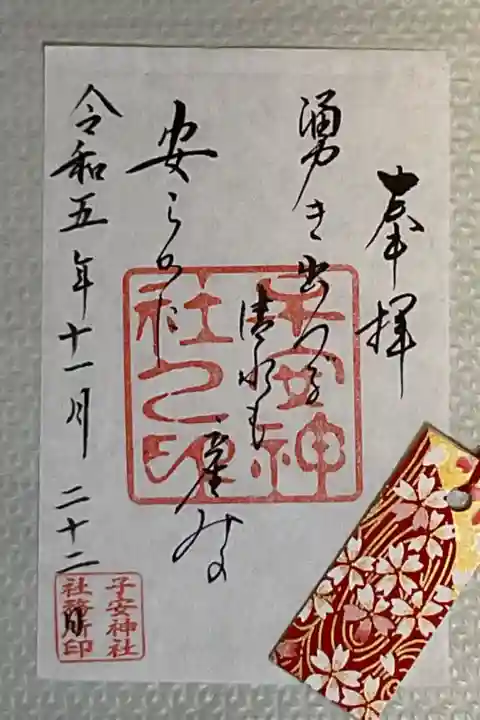 奉拝
湧き出づる
清水も
産みの
安らかに
令和五年十一月二十二日
子安神
社之印
子安神社
社務所印